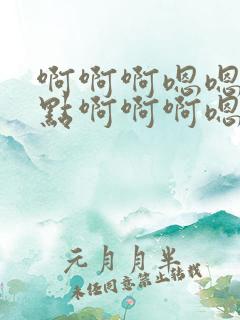 啊啊啊嗯嗯
點啊啊啊嗯
元月月半
未经同意禁止转载